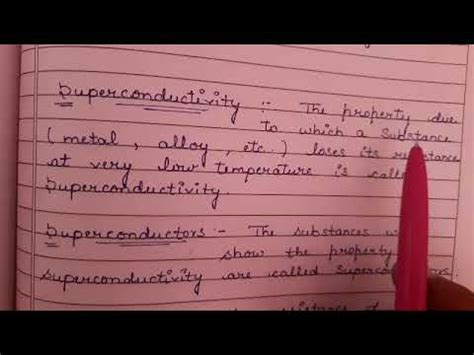 Superconductivity :- The property due
to which a substance
( metal, alloy, etc.) loses its resistance
at very low temperature is called
Superconductivity.
Superconductors :- The substances
show the property
superconductivity are called Superconductors.
of